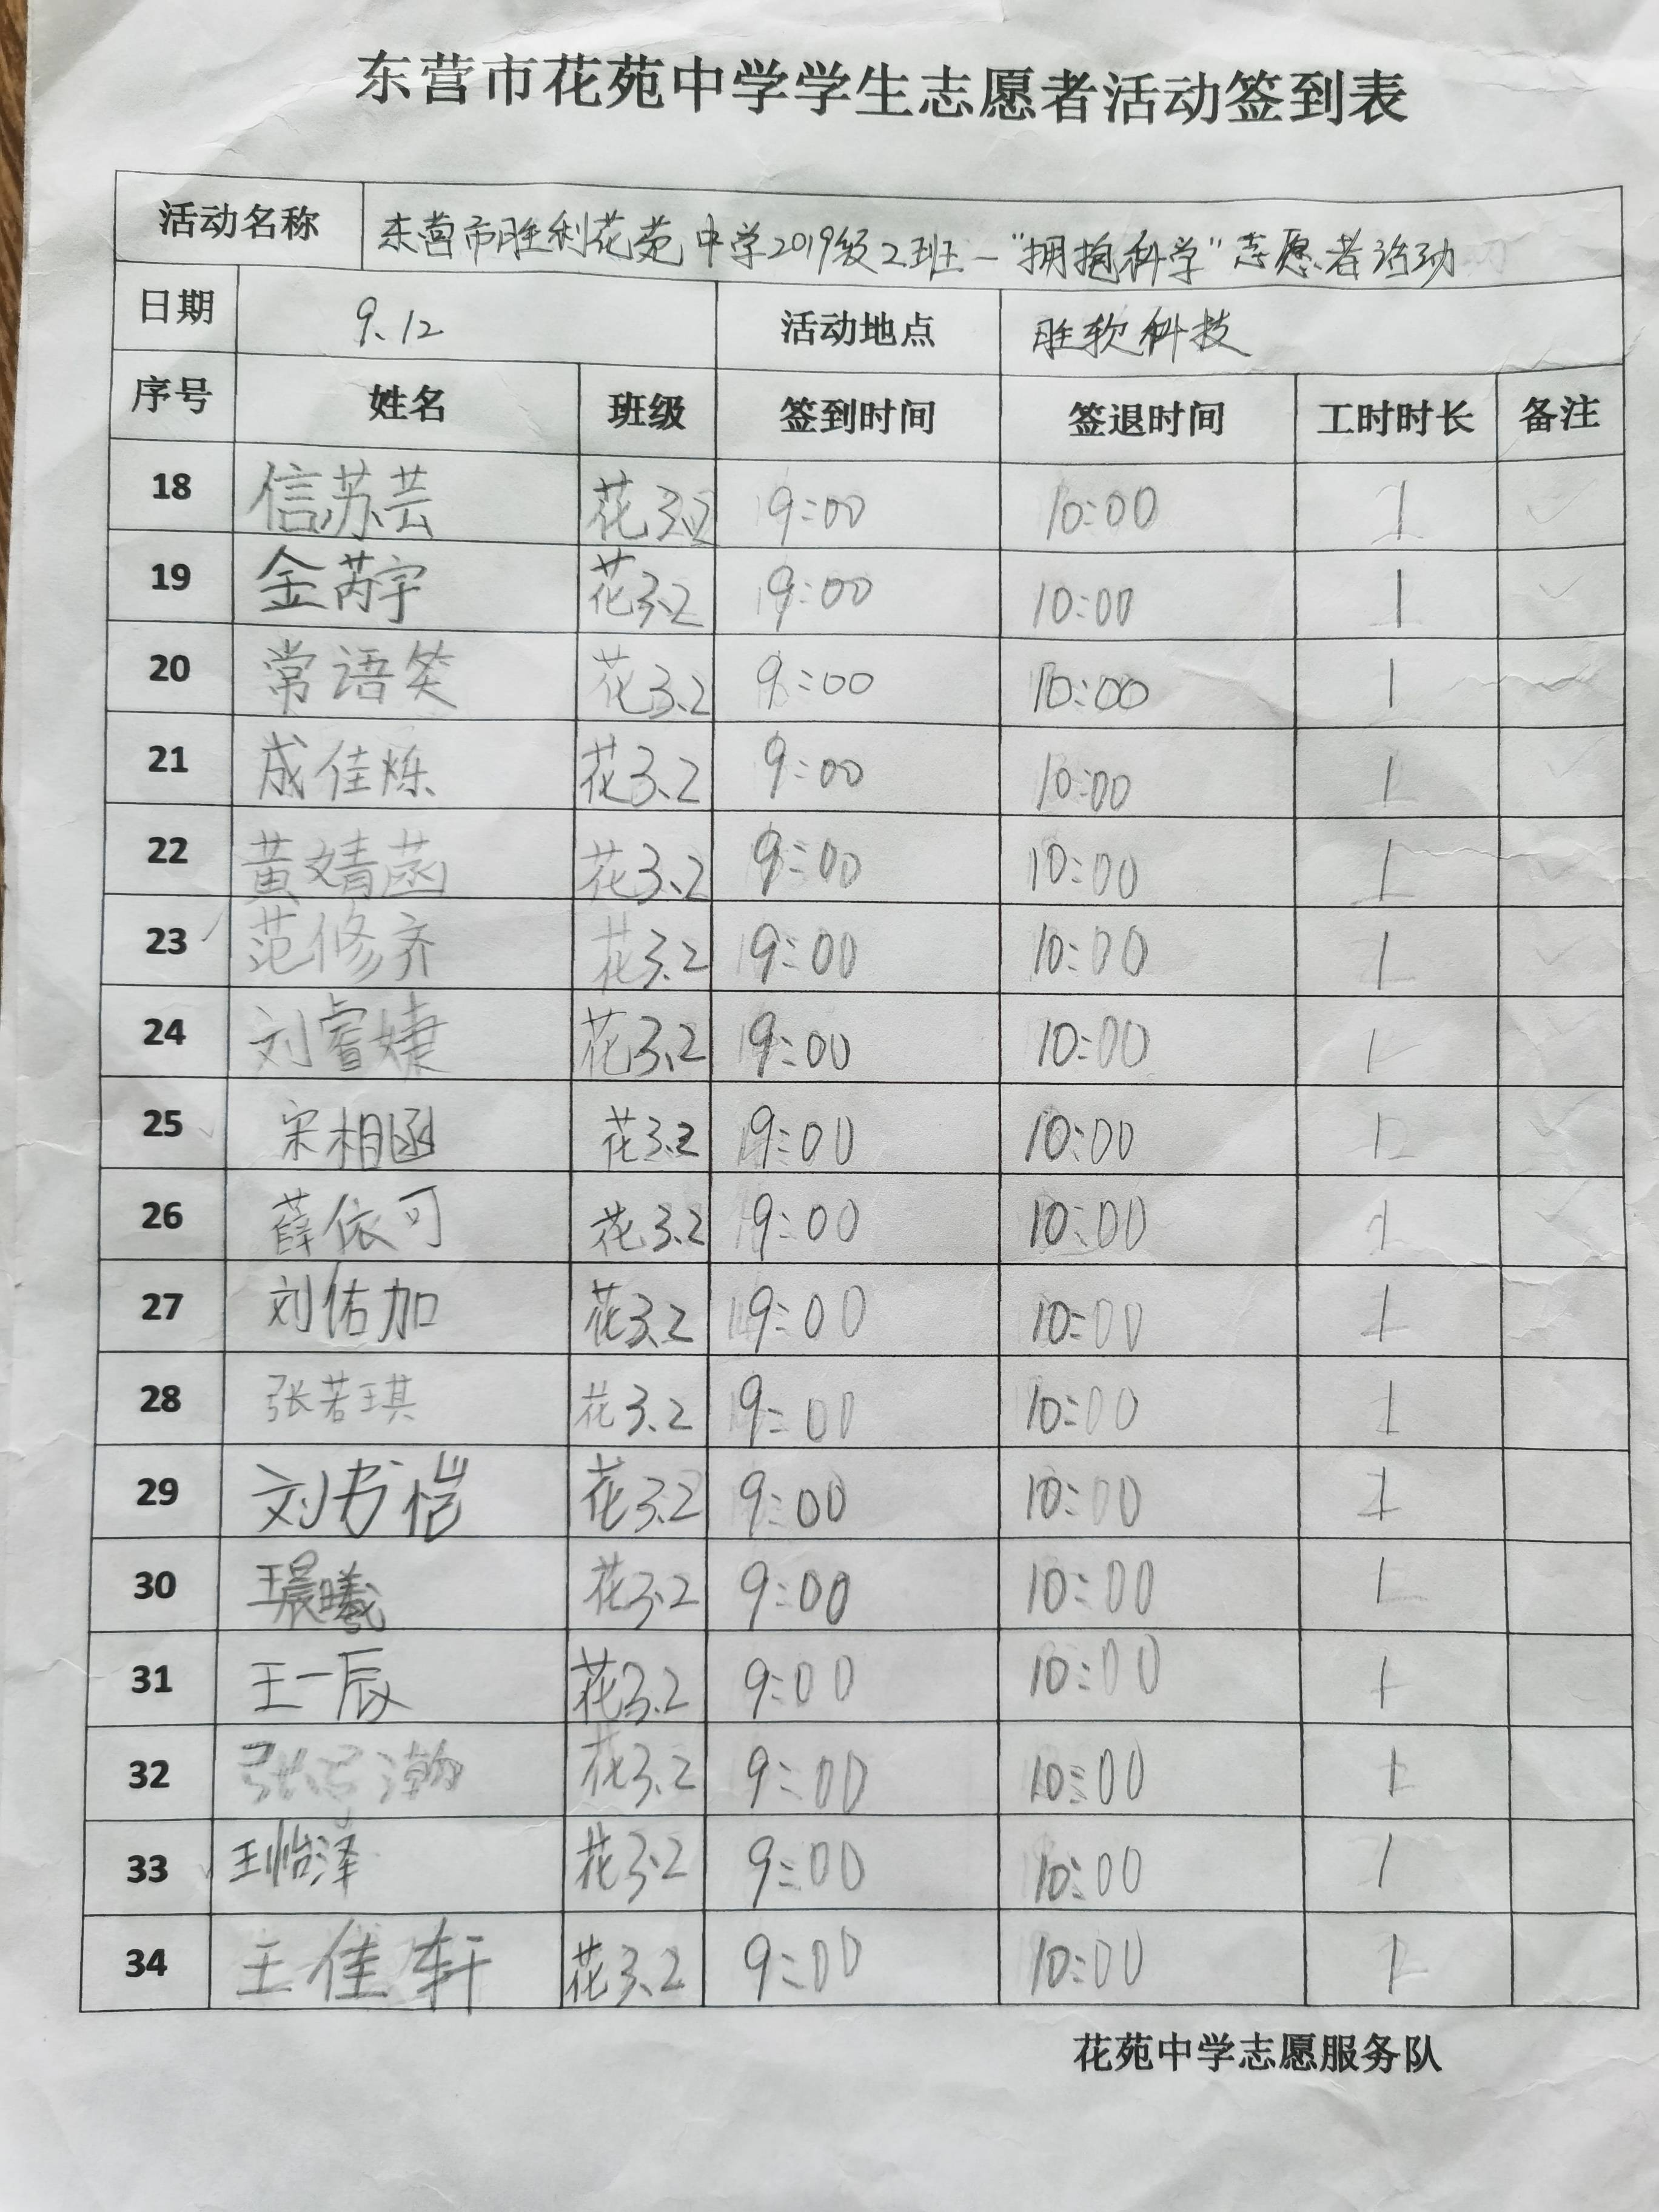 东营市花苑中学学生志愿者活动签到表
活动名称 东营市胜利花苑中学2019级2班—“拥抱科学”志愿者活动
日期 9.12 活动地点 胜软科技
序号 姓名 班级 签到时间 签退时间 工时时长 备注
18 信苏芸 花3.2 9:00 10:00 1
19 金芮宇 花3.2 9:00 10:00 1
20 常语笑 花3.2 9:00 10:00 1
21 成佳烁 花3.2 9:00 10:00 1
22 黄婧菡 花3.2 9:00 10:00 1
23 范修齐 花3.2 9:00 10:00 1
24 刘睿婕 花3.2 9:00 10:00 1
25 宋相函 花3.2 9:00 10:00 1
26 薛依可 花3.2 9:00 10:00 1
27 刘佑加 花3.2 9:00 10:00 1
28 张若琪 花3.2 9:00 10:00 1
29 刘书恺 花3.2 9:00 10:00 1
30 王晨曦 花3.2 9:00 10:00 1
31 王一辰 花3.2 9:00 10:00 1
32 花3.2 9:00 10:00 1
33 王怡泽 花3.2 9:00 10:00 1
34 王佳轩 花3.2 9:00 10:00 1
花苑中学志愿服务队